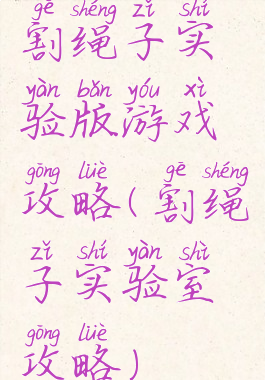 gē shéng zǐ shí
割绳子实
yàn bǎn yóu xì
验版游戏
gōng lüè gē shéng
攻略(割绳
zǐ shí yàn shì
子实验室
gōng lüè
攻略)